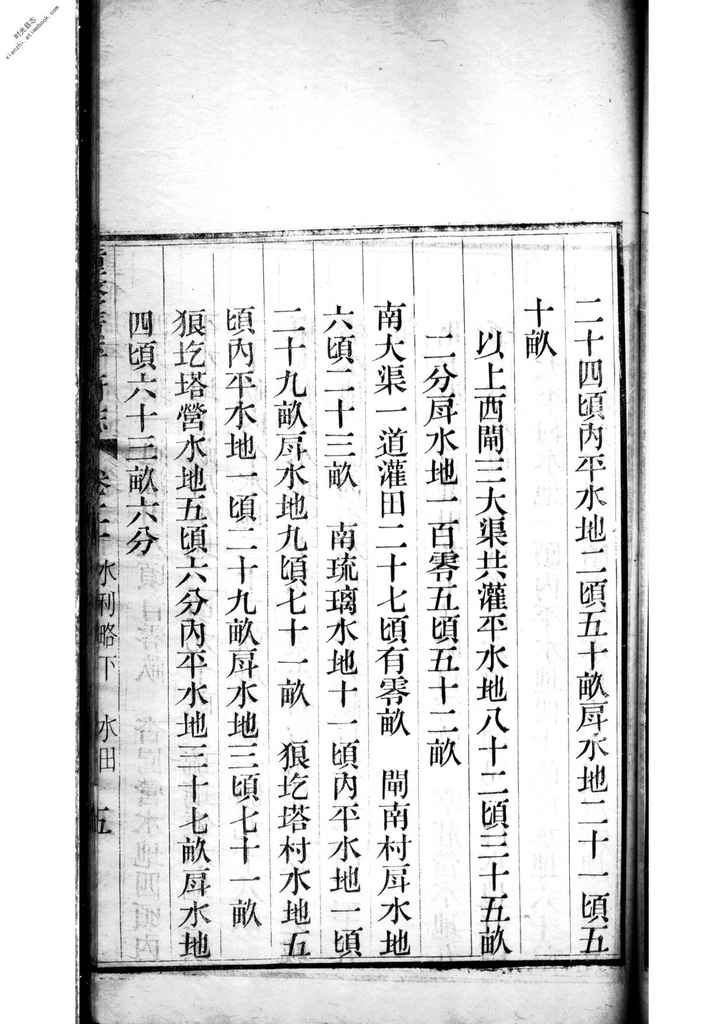 二十四頃內平水地二頃五十畝戽水地二十一頃五
十畝
以上西閘三大渠共灌平水地八十二頃三十五畝
二分戽水地一百零五頃五十二畝
南大渠一道灌田二十七頃有零畝　閘南村戽水地
六頃二十三畝　南琉璃水地十一頃內平水地一頃
二十九畝戽水地九頃七十一畝　狼圪塔村水地五
頃內平水地一頃二十九畝戽水地三頃七十一畝
狼圪塔營水地五頃六分內平水地三十七畝戽水地
四頃六十三畝六分
水利略下　水田　五
时光日志